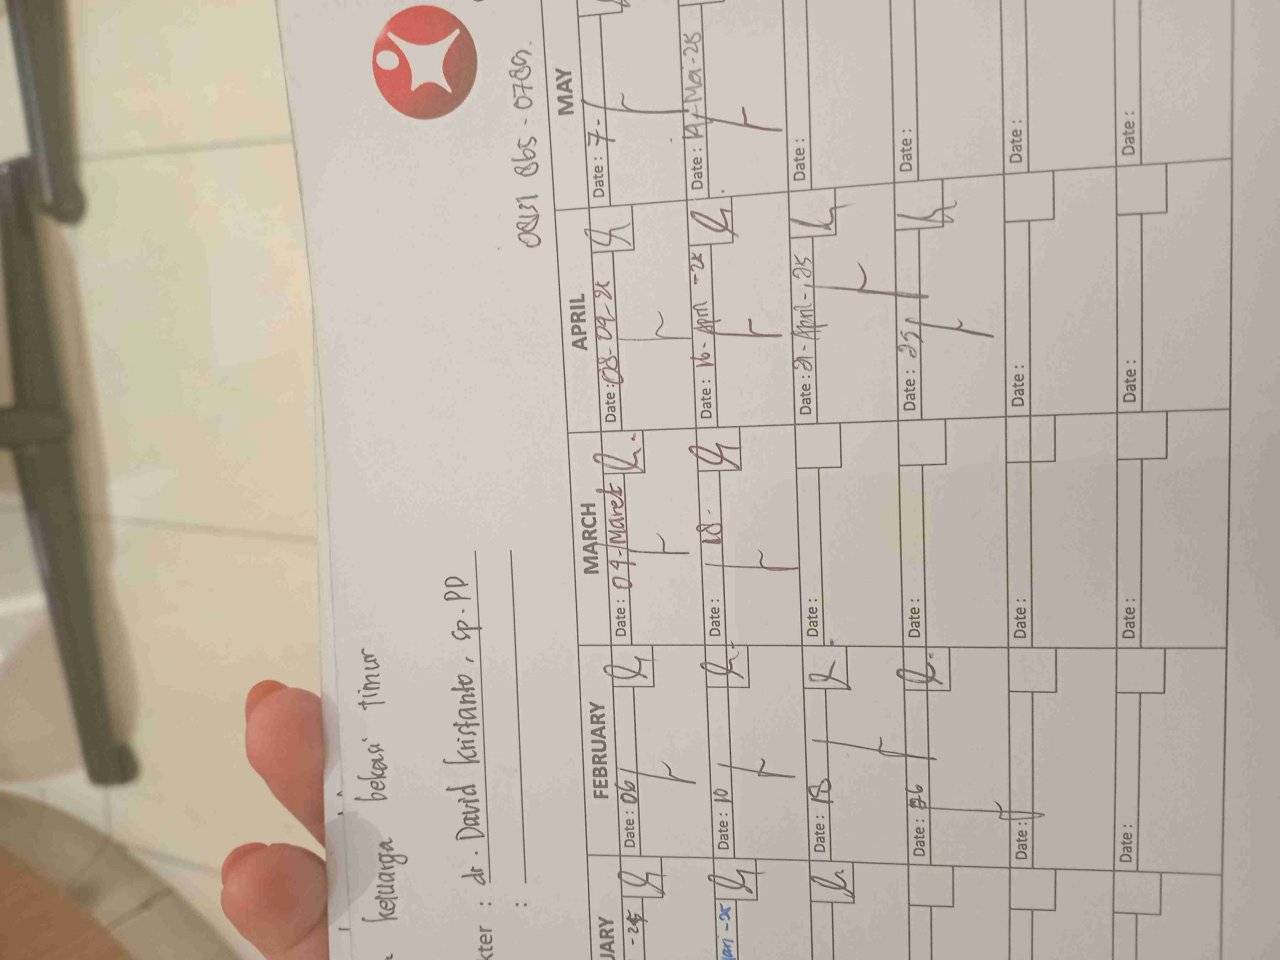 keluarga bekasi timur
kter : dr. David Kristanto, Sp.PD
:
UARY FEBRUARY MARCH APRIL MAY
-25 Date : 06 Date : 04-Maret Date : 08-04-25 Date : 7-
Jan-25 Date : 10 Date : 18- Date : 16-April-25 Date : 14-Mei-25
Date : 18 Date : Date : 21-April-25 Date :
Date : 26 Date : Date : 25, Date :
Date : Date : Date : Date :
Date : Date : Date : Date :